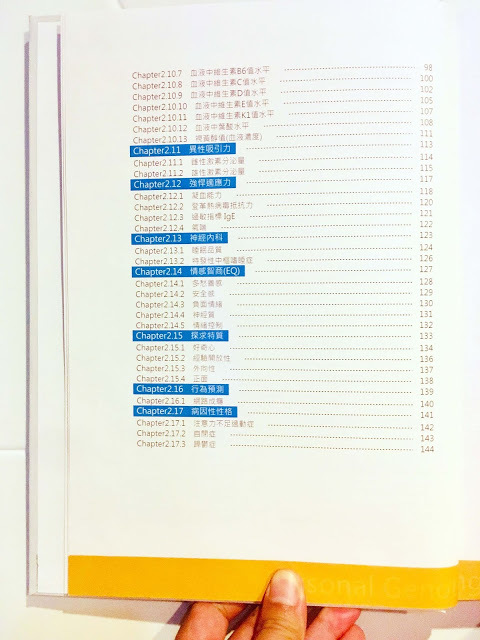 Chapter2.10.7 血液中維生素B6值水平 98
Chapter2.10.8 血液中維生素C值水平 100
Chapter2.10.9 血液中維生素D值水平 102
Chapter2.10.10 血液中維生素E值水平 105
Chapter2.10.11 血液中維生素K1值水平 107
Chapter2.10.12 血液中葉酸水平 108
Chapter2.10.13 視黃醇值(血液濃度) 111
Chapter2.11 異性吸引力 113
Chapter2.11.1 雄性激素分泌量 114
Chapter2.11.2 雌性激素分泌量 115
Chapter2.12 強悍適應力 117
Chapter2.12.1 凝血能力 118
Chapter2.12.2 登革熱病毒抵抗力 120
Chapter2.12.3 過敏指標 IgE 121
Chapter2.12.4 氣喘 122
Chapter2.13 神經內科 123
Chapter2.13.1 睡眠品質 124
Chapter2.13.2 特發性中樞嗜睡症 126
Chapter2.14 情感智商(EQ) 127
Chapter2.14.1 多愁善感 128
Chapter2.14.2 安全感 129
Chapter2.14.3 負面情緒 130
Chapter2.14.4 神經質 131
Chapter2.14.5 情緒控制 132
Chapter2.15 探求特質 133
Chapter2.15.1 好奇心 134
Chapter2.15.2 經驗開放性 136
Chapter2.15.3 外向性 137
Chapter2.15.4 正面 138
Chapter2.16 行為預測 139
Chapter2.16.1 網路成癮 140
Chapter2.17 病因性性格 141
Chapter2.17.1 注意力不足過動症 142
Chapter2.17.2 自閉症 143
Chapter2.17.3 躁鬱症 144